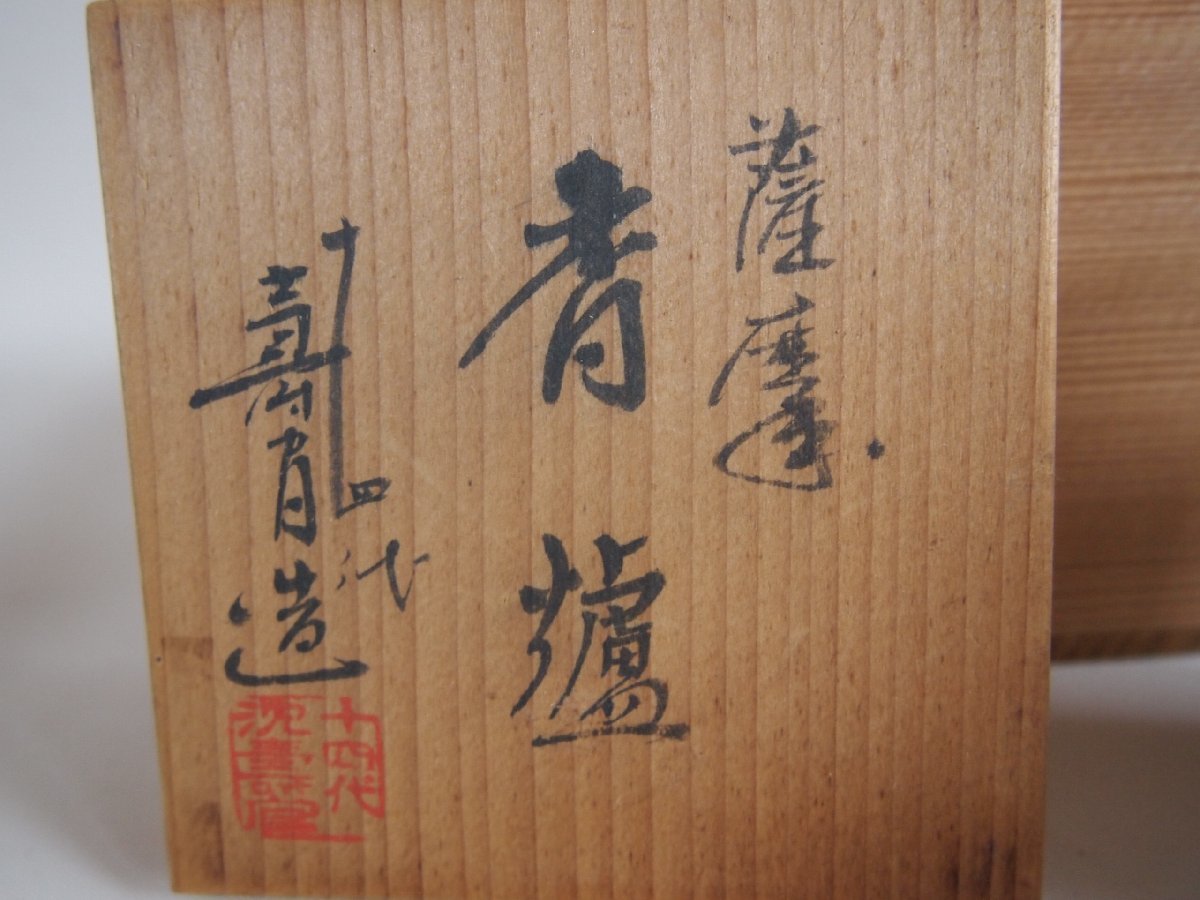 薩摩
香爐
十四代
壽官造
十四代
沈壽官